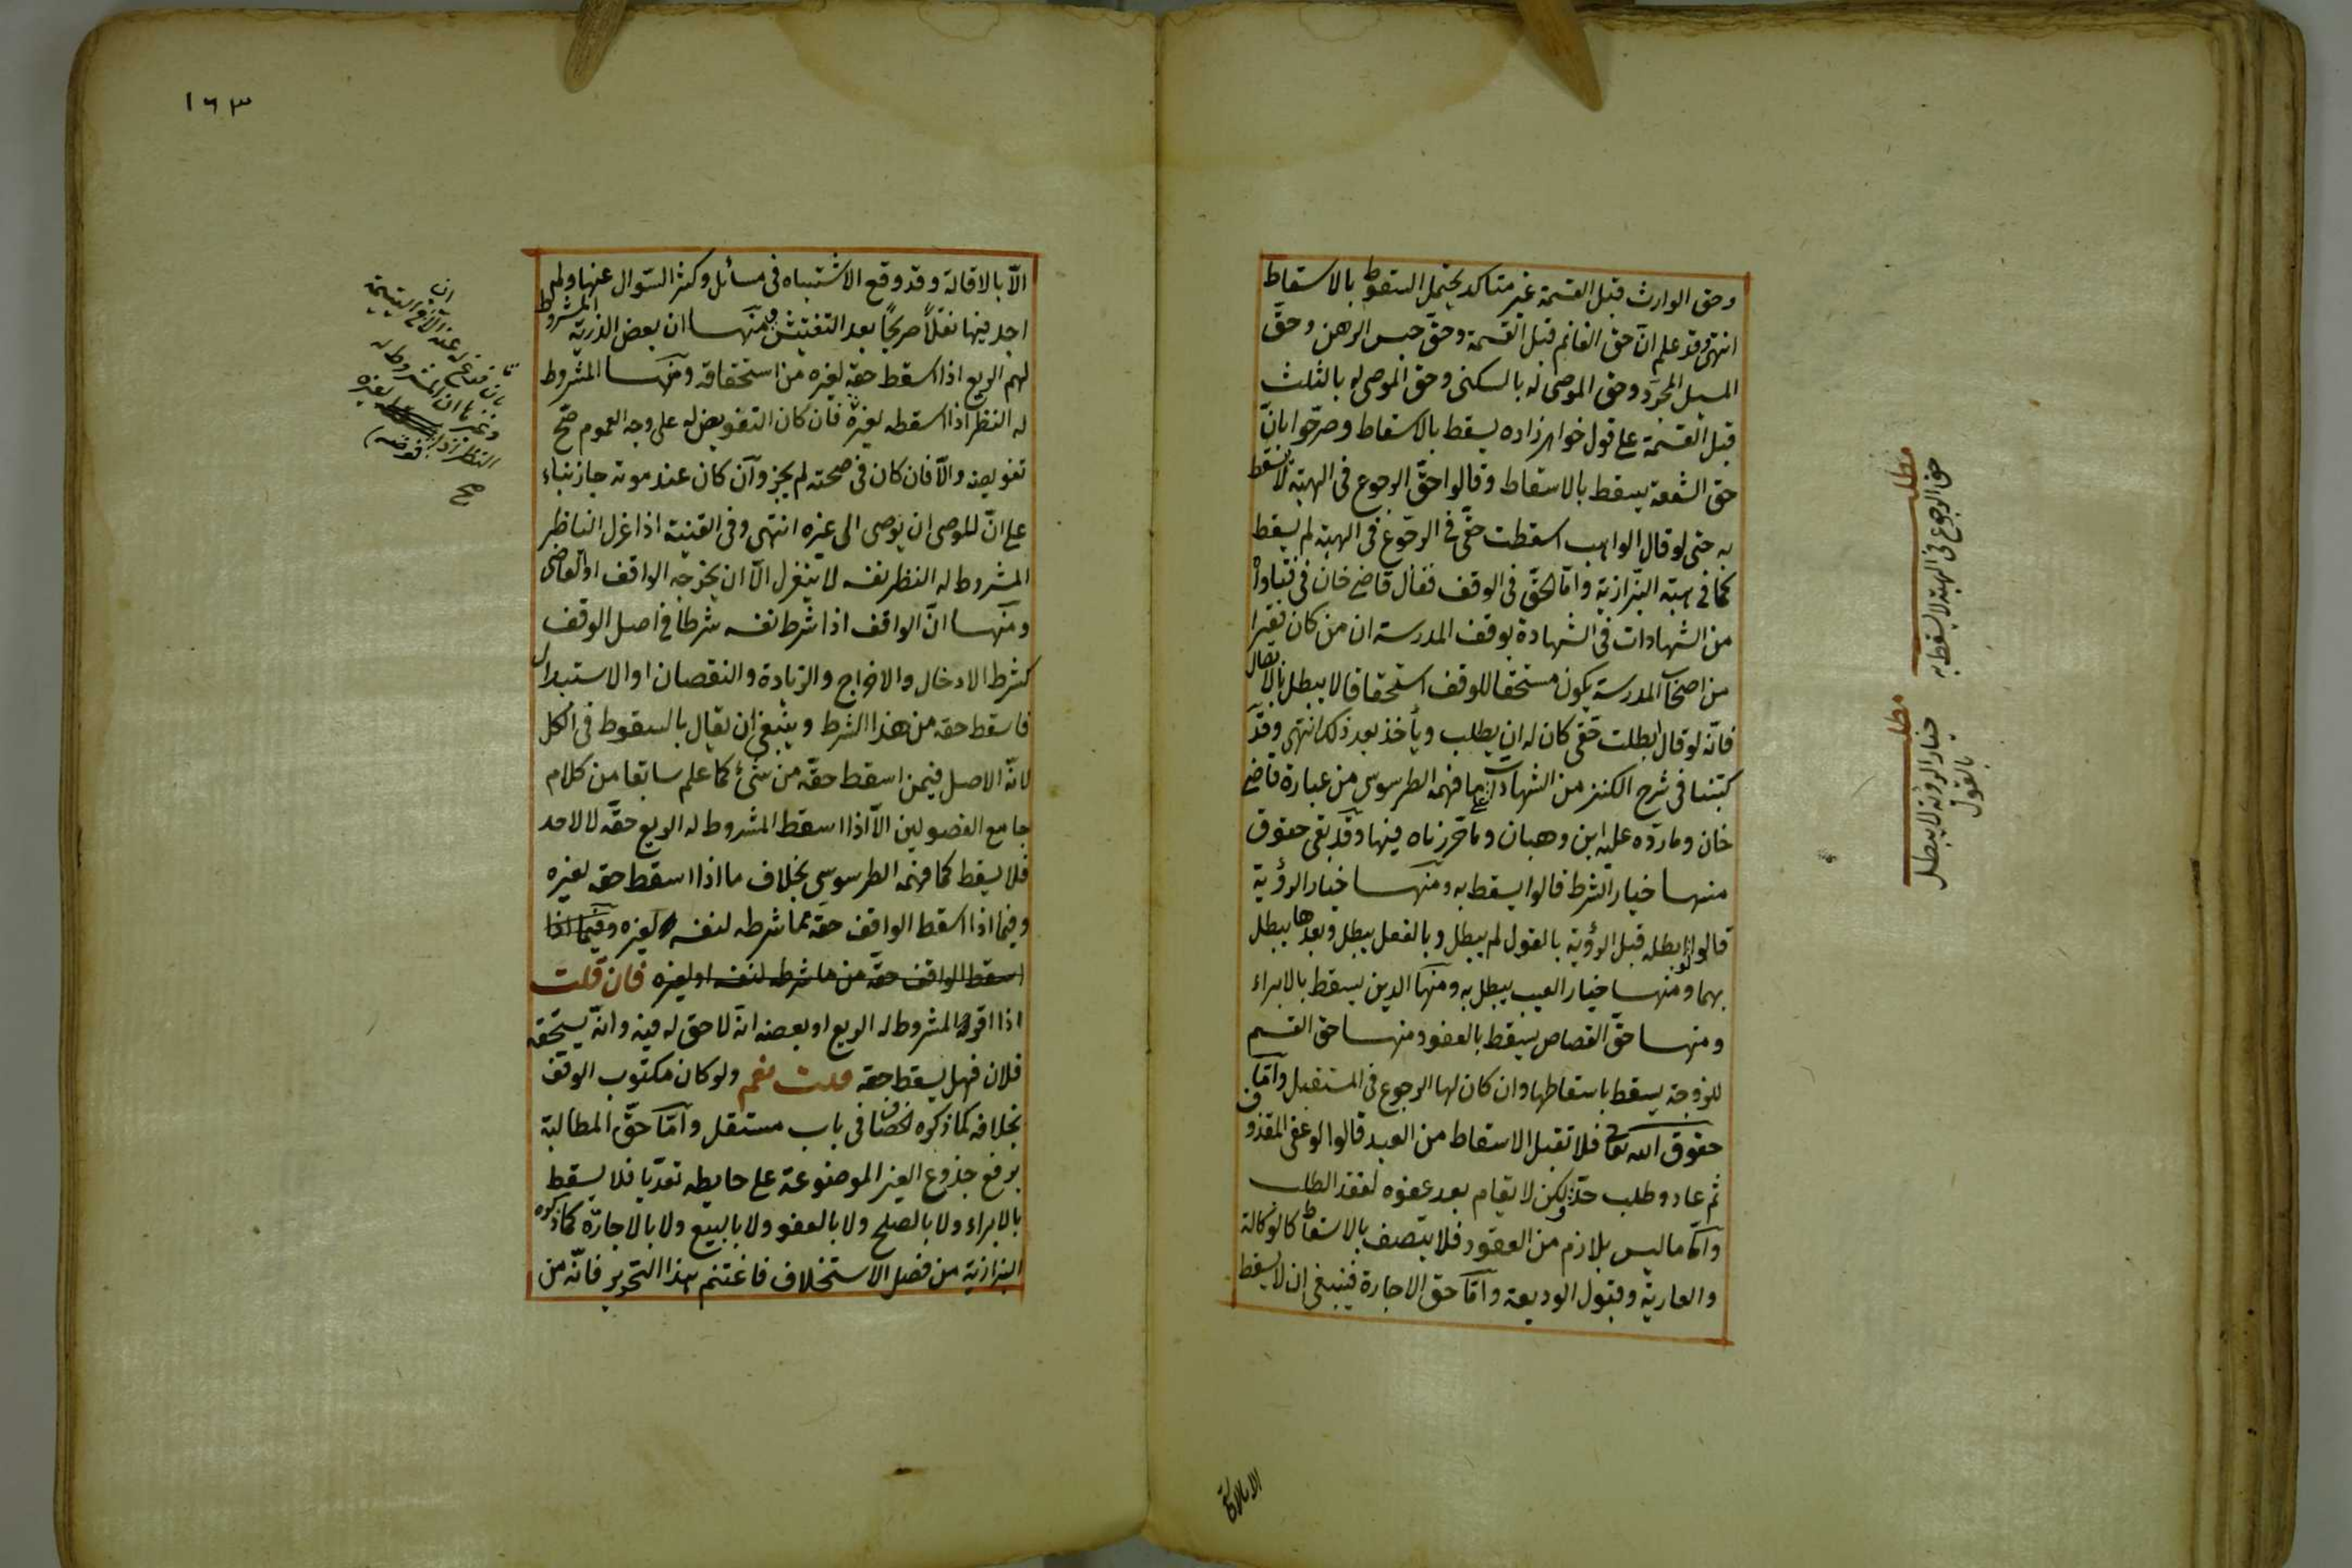 وحق الوارث قبل القسمة غير متاكد يحتمل السقوط بالاسقاط
انتهى وقد علم ان حق الغانم قبل القسمة وحق حبس الرهن وحق
المسيل المجرد وحق الموصى له بالسكنى وحق الموصى له بالثلث
قبل القسمة على قول خواهر زاده يسقط بالاسقاط وصرحوا بان
حق الشفعة يسقط بالاسقاط وقالوا حق الرجوع في الهبة لا يسقط
به حتى لو قال الواهب اسقطت حقى في الرجوع في الهبة لم يسقط
كما في هبة البزازية واما الحق في الوقف فقال قاضي خان في فتاواه
من الشهادات في الشهادة بوقف المدرسة ان من كان فقيرا
من اصحاب المدرسة يكون مستحقا للوقف استحقاقا لا يبطل بالابطال
فانه لو قال ابطلت حقى كان له ان يطلب ويأخذ بعد ذلك انتهى وقد
كتبنا في شرح الكنز من الشهادات ما فهمه الطرسوسي من عبارة قاضي
خان وما رده عليه ابن وهبان وما حررناه فيها وقد بقى حقوق
منها خيار الشرط قالوا يسقط به ومنها خيار الرؤية
قالوا لو ابطله قبل الرؤية بالقول لم يبطل وبالفعل يبطل وبعدها يبطل
بهما ومنها خيار العيب يبطل به ومنها الدين يسقط بالابراء
ومنها حق القصاص يسقط بالعفو ومنها حق القسم
للزوجة يسقط باسقاطها وان كان لها الرجوع في المستقبل واما
حقوق الله تعالى فلا تقبل الاسقاط من العبد قالوا لو عفى المقذوف
ثم عاد وطلب حد ولكن لا يقام بعد عفوه لفقد الطلب
واما ما ليس بلازم من العقود فلا يتصف بالاسقاط كالوكالة
والعارية وقبول الوديعة واما حق الاجارة فينبغي ان لا يسقط
مطلب
حق الرجوع في الهبة لا يسقط به
مطلب
خيار الرؤية لا يبطل
بالقول
الا بالاقالة
١٦٣
الا بالاقالة وقد وقع الاشتباه في مسائل وكثر السؤال عنها ولم
اجد فيها نقلا صريحا بعد التفتيش ومنها ان بعض الذرية المشروط
لهم الريع اذا اسقط حقه لغيره من استحقاقه ومنها المشروط
له النظر اذا اسقطه لغيره فان كان التفويض له على وجه العموم صح
تفويضه والا فان كان في صحته لم يجز وان كان عند موته جاز بناء
على ان للوصى ان يوصى الى غيره انتهى وفي القنية اذا عزل الناظر
المشروط له النظر نفسه لا ينعزل الا ان يخرجه الواقف او القاضى
ومنها ان الواقف اذا شرط نفسه شرطا في اصل الوقف
كشرط الادخال والاخراج والزيادة والنقصان او الاستبدال
فاسقط حقه من هذا الشرط وينبغي ان يقال بالسقوط في الكل
لانه الاصل فيمن اسقط حقه من شئ كما علم سابقا من كلام
جامع الفصولين الا اذا اسقط المشروط له الريع حقه لا لاحد
فلا يسقط كما فهمه الطرسوسي بخلاف ما اذا اسقط حقه لغيره
وفيما اذا اسقط الواقف حقه مما شرطه لنفسه لغيره وفيما اذا
اسقط الواقف حقه من ما شرطه لنفسه او لغيره فان قلت
اذا اقر المشروط له الريع او بعضه انه لا حق له فيه وانه يستحقه
فلان فهل يسقط حقه قلت نعم ولو كان مكتوب الوقف
بخلافه كما ذكره الخصاف في باب مستقل واما حق المطالبة
برفع جذوع الغير الموضوعة على حايطه تعديا فلا يسقط
بالابراء ولا بالصلح ولا بالعفو ولا بالبيع ولا بالاجارة كما ذكره
البزازية من فصل الاستخلاف فاغتنم هذا التحرير فانه من
المشروط له
النظر اذا
لغيره
فوضه
صح